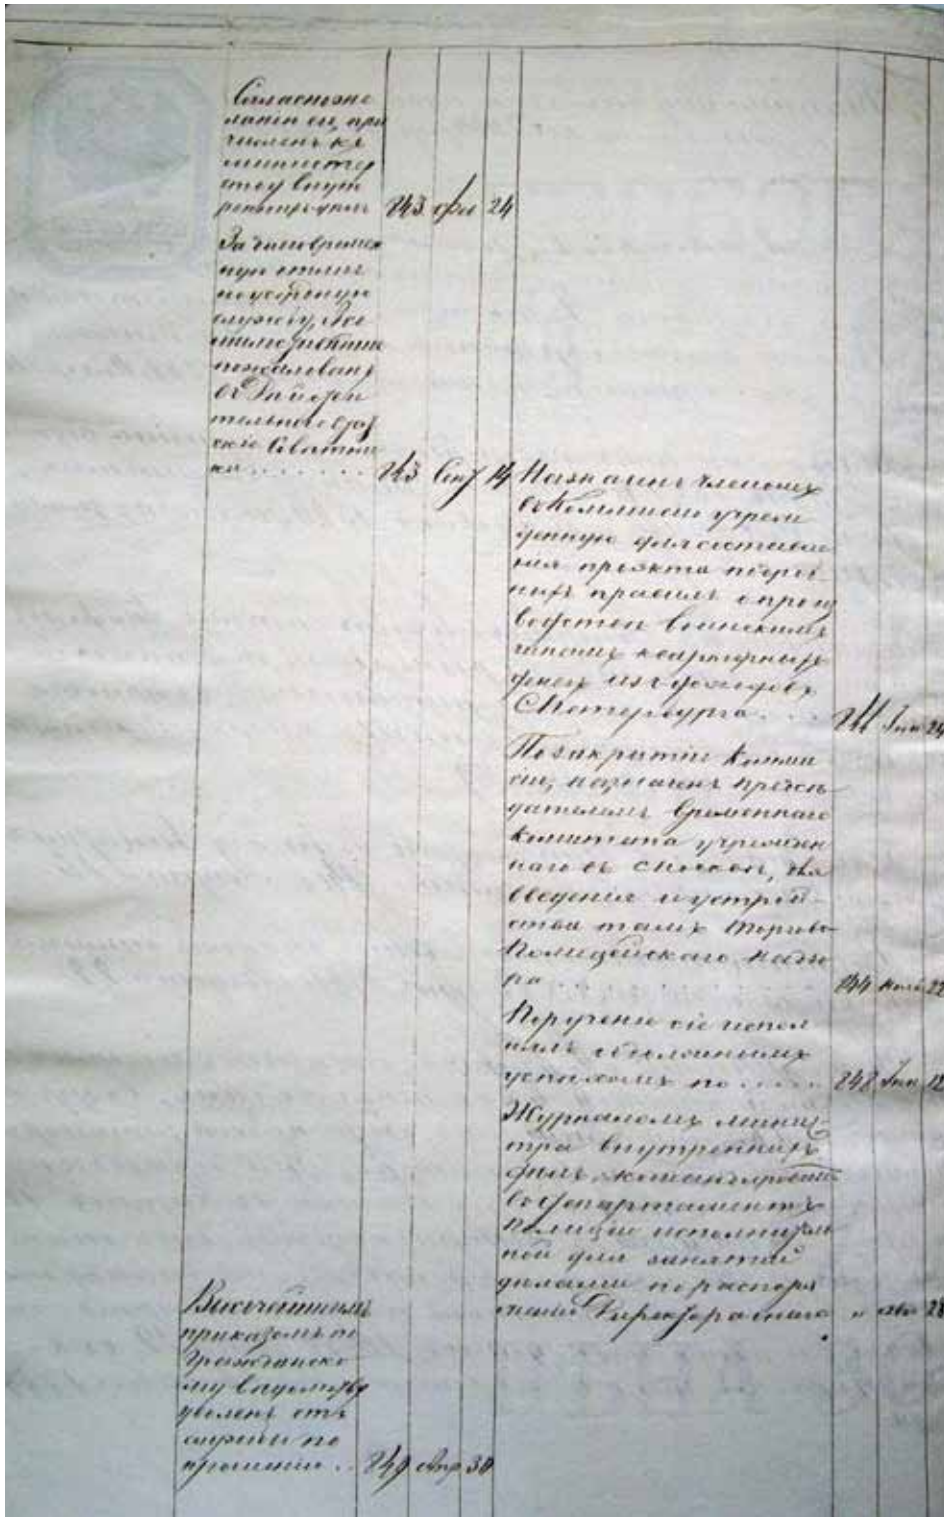 Согласно же
ланію его, при
численъ къ
министер
ству внут
реннихъ дѣлъ 843 фев 24
За долговремен
ную отлич
но усердную
службу, Все
милостивѣйше
пожалованъ
въ Дѣйстви
тельного Стат
скіе Совѣтни
ки . . . . . . . 843 Сент 14
Назначенъ членомъ
въ Коммисію учреж
денную для составле
нія проэкта подроб
ныхъ правилъ о произ
водствѣ воинскимъ
чинамъ квартирныхъ
денегъ изъ доходовъ
СПетербурга . . . 844 Янв 24
По закрытіи Коммис
сіи, назначенъ предсѣ
дателемъ временнаго
Комитета учрежден
наго въ Москвѣ, для
введенія и устрой-
ства тамъ Торгово
Полицейскаго надзо
ра 844 Нояб 22
Порученіе сіе испол
нялъ съ
успѣхомъ по . . . . . 848 Янв 12
Журналомъ минис-
тра внутреннихъ
дѣлъ командированъ
въ Департаментъ
Полиціи исполнитель
ной для занятій
дѣлами по распоря
женію Директора онаго " 28
Высочайшимъ
приказомъ по
Гражданско
му вѣдомству
уволенъ отъ
службы по
прошенію . . 849 Апр 30